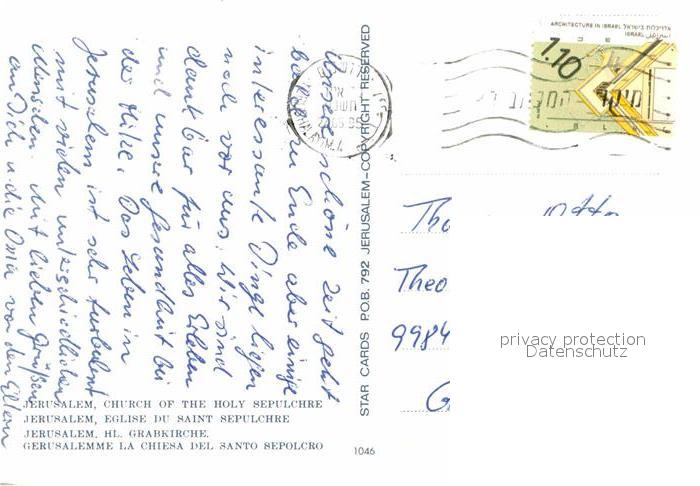 Unsere schöne Zeit geht
bald zu Ende aber einige
interessante Dinge liegen
noch vor uns. Wir sind
dankbar für alles Erleben
und unsere Gesundheit bei
der Hitze. Das Leben in
Jerusalem ist sehr turbulent
mit vielen unterschiedlichen
Menschen. Mit lieben Grüßen
an Dich u. die Oma von den Eltern
JERUSALEM, CHURCH OF THE HOLY SEPULCHRE
JERUSALEM, EGLISE DU SAINT SEPULCHRE
JERUSALEM, HL. GRABKIRCHE.
GERUSALEMME LA CHIESA DEL SANTO SEPOLCRO
STAR CARDS P.O.B. 792 JERUSALEM–COPYRIGHT RESERVED
1046
ARCHITECTURE IN ISRAEL אדריכלות בישראל
ISRAEL
1.10
Theo
9984
privacy protection
Datenschutz